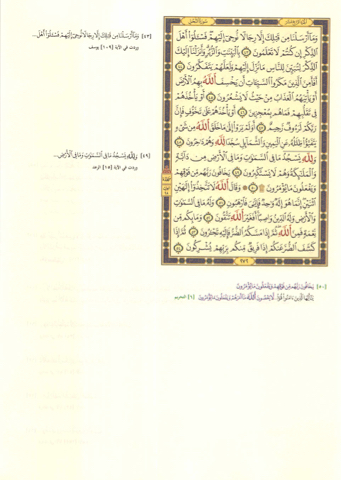 وَمَآ أَرۡسَلۡنَا مِن قَبۡلِكَ إِلَّا رِجَالٗا نُّوحِيٓ إِلَيۡهِمۡۖ فَسۡـَٔلُوٓاْ أَهۡلَ
ٱلذِّكۡرِ إِن كُنتُمۡ لَا تَعۡلَمُونَ ٤٣ بِٱلۡبَيِّنَٰتِ وَٱلزُّبُرِۗ وَأَنزَلۡنَآ إِلَيۡكَ
ٱلذِّكۡرَ لِتُبَيِّنَ لِلنَّاسِ مَا نُزِّلَ إِلَيۡهِمۡ وَلَعَلَّهُمۡ يَتَفَكَّرُونَ ٤٤
أَفَأَمِنَ ٱلَّذِينَ مَكَرُواْ ٱلسَّيِّـَٔاتِ أَن يَخۡسِفَ ٱللَّهُ بِهِمُ ٱلۡأَرۡضَ
أَوۡ يَأۡتِيَهُمُ ٱلۡعَذَابُ مِنۡ حَيۡثُ لَا يَشۡعُرُونَ ٤٥ أَوۡ يَأۡخُذَهُمۡ
فِي تَقَلُّبِهِمۡ فَمَا هُم بِمُعۡجِزِينَ ٤٦ أَوۡ يَأۡخُذَهُمۡ عَلَىٰ تَخَوُّفٖ فَإِنَّ
رَبَّكُمۡ لَرَءُوفٞ رَّحِيمٌ ٤٧ أَوَلَمۡ يَرَوۡاْ إِلَىٰ مَا خَلَقَ ٱللَّهُ مِن شَيۡءٖ
يَتَفَيَّؤُاْ ظِلَٰلُهُۥ عَنِ ٱلۡيَمِينِ وَٱلشَّمَآئِلِ سُجَّدٗا لِّلَّهِ وَهُمۡ دَٰخِرُونَ ٤٨
وَلِلَّهِۤ يَسۡجُدُۤ مَا فِي ٱلسَّمَٰوَٰتِ وَمَا فِي ٱلۡأَرۡضِ مِن دَآبَّةٖ
وَٱلۡمَلَٰٓئِكَةُ وَهُمۡ لَا يَسۡتَكۡبِرُونَ ٤٩ يَخَافُونَ رَبَّهُم مِّن فَوۡقِهِمۡ
وَيَفۡعَلُونَ مَا يُؤۡمَرُونَ۩ ٥٠ وَقَالَ ٱللَّهُ لَا تَتَّخِذُوٓاْ إِلَٰهَيۡنِ
ٱثۡنَيۡنِۖ إِنَّمَا هُوَ إِلَٰهٞ وَٰحِدٞ فَإِيَّٰيَ فَٱرۡهَبُونِ ٥١ وَلَهُۥ مَا فِي ٱلسَّمَٰوَٰتِ
وَٱلۡأَرۡضِ وَلَهُ ٱلدِّينُ وَاصِبًاۚ أَفَغَيۡرَ ٱللَّهِ تَتَّقُونَ ٥٢ وَمَا بِكُم مِّن
نِّعۡمَةٖ فَمِنَ ٱللَّهِۖ ثُمَّ إِذَا مَسَّكُمُ ٱلضُّرُّ فَإِلَيۡهِ تَجۡـَٔرُونَ ٥٣ ثُمَّ إِذَا
كَشَفَ ٱلضُّرَّ عَنكُمۡ إِذَا فَرِيقٞ مِّنكُم بِرَبِّهِمۡ يُشۡرِكُونَ ٥٤
[٤٣] وَمَآ أَرۡسَلۡنَا مِن قَبۡلِكَ إِلَّا رِجَالٗا نُّوحِيٓ إِلَيۡهِمۡۖ فَسۡـَٔلُوٓاْ أَهۡلَ...
وردت في الآية [١٠٩] يوسف
[٤٩] وَلِلَّهِۤ يَسۡجُدُۤ مَا فِي ٱلسَّمَٰوَٰتِ وَمَا فِي ٱلۡأَرۡضِ...
وردت في الآية [١٥] الرعد
[٥٠] يَخَافُونَ رَبَّهُم مِّن فَوۡقِهِمۡ وَيَفۡعَلُونَ مَا يُؤۡمَرُونَ